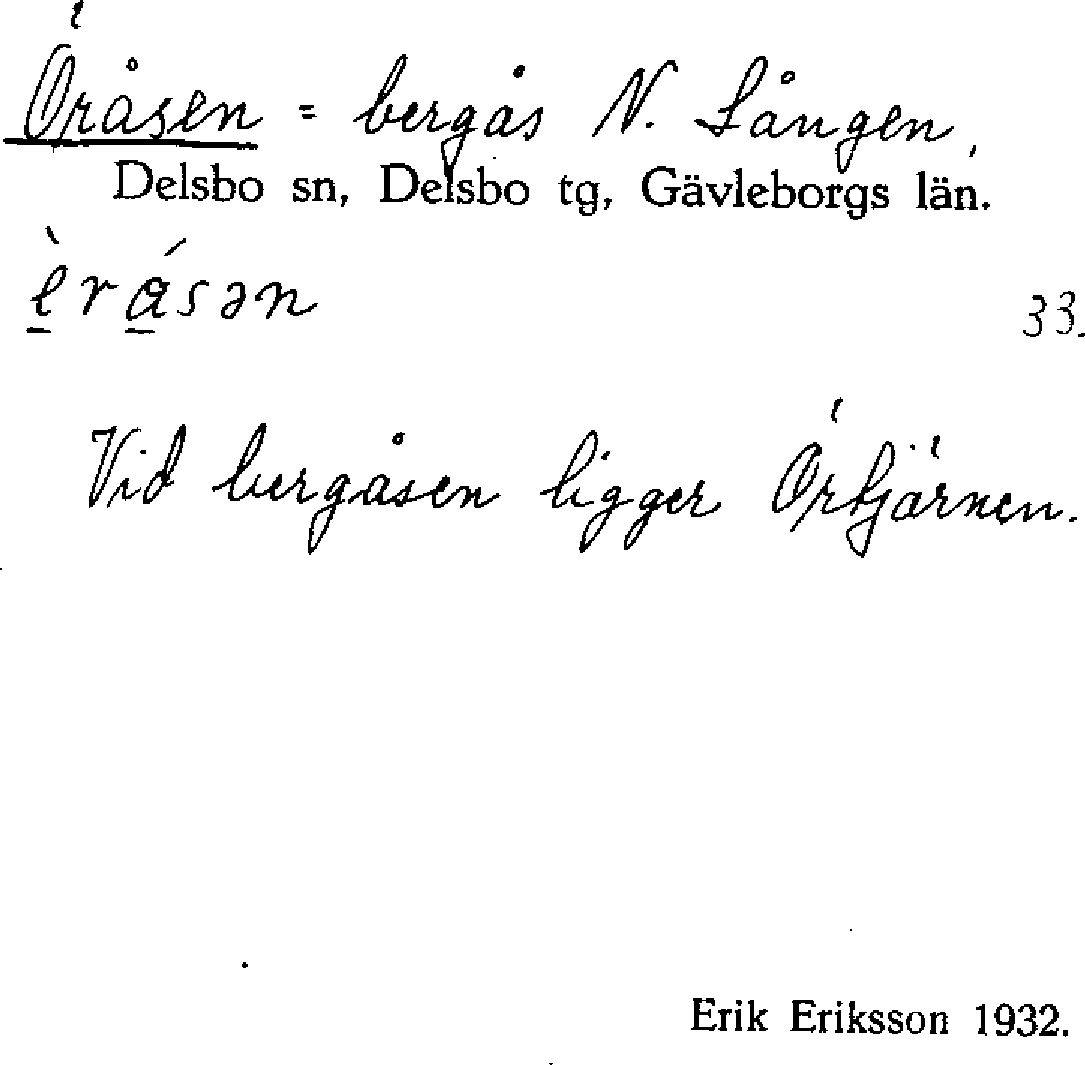 Öråsen = bergås N. Lången,
Delsbo sn, Delsbo tg, Gävleborgs län.
è̱rá̱sən 33.
Vid bergåsen ligger Örtjärnen.
Erik Eriksson 1932.